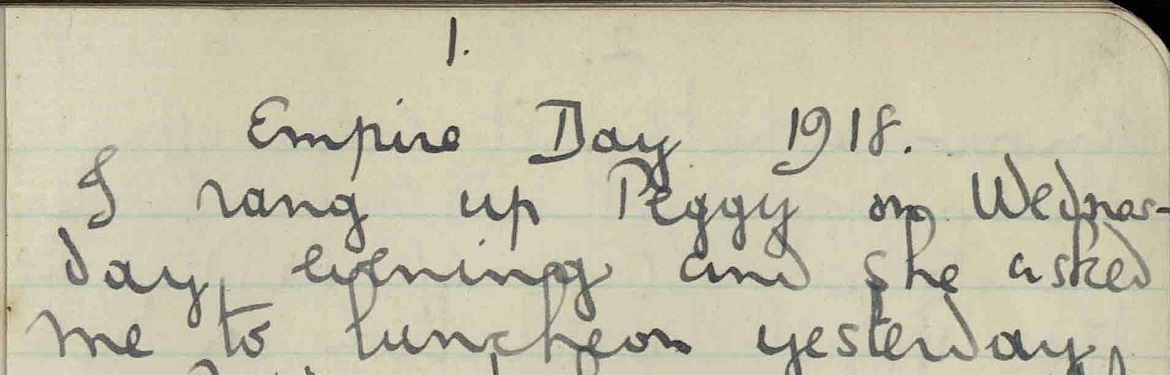 1.
Empire Day 1918.
I rang up Peggy on Wednes-
day evening and she asked
me to luncheon yesterday,